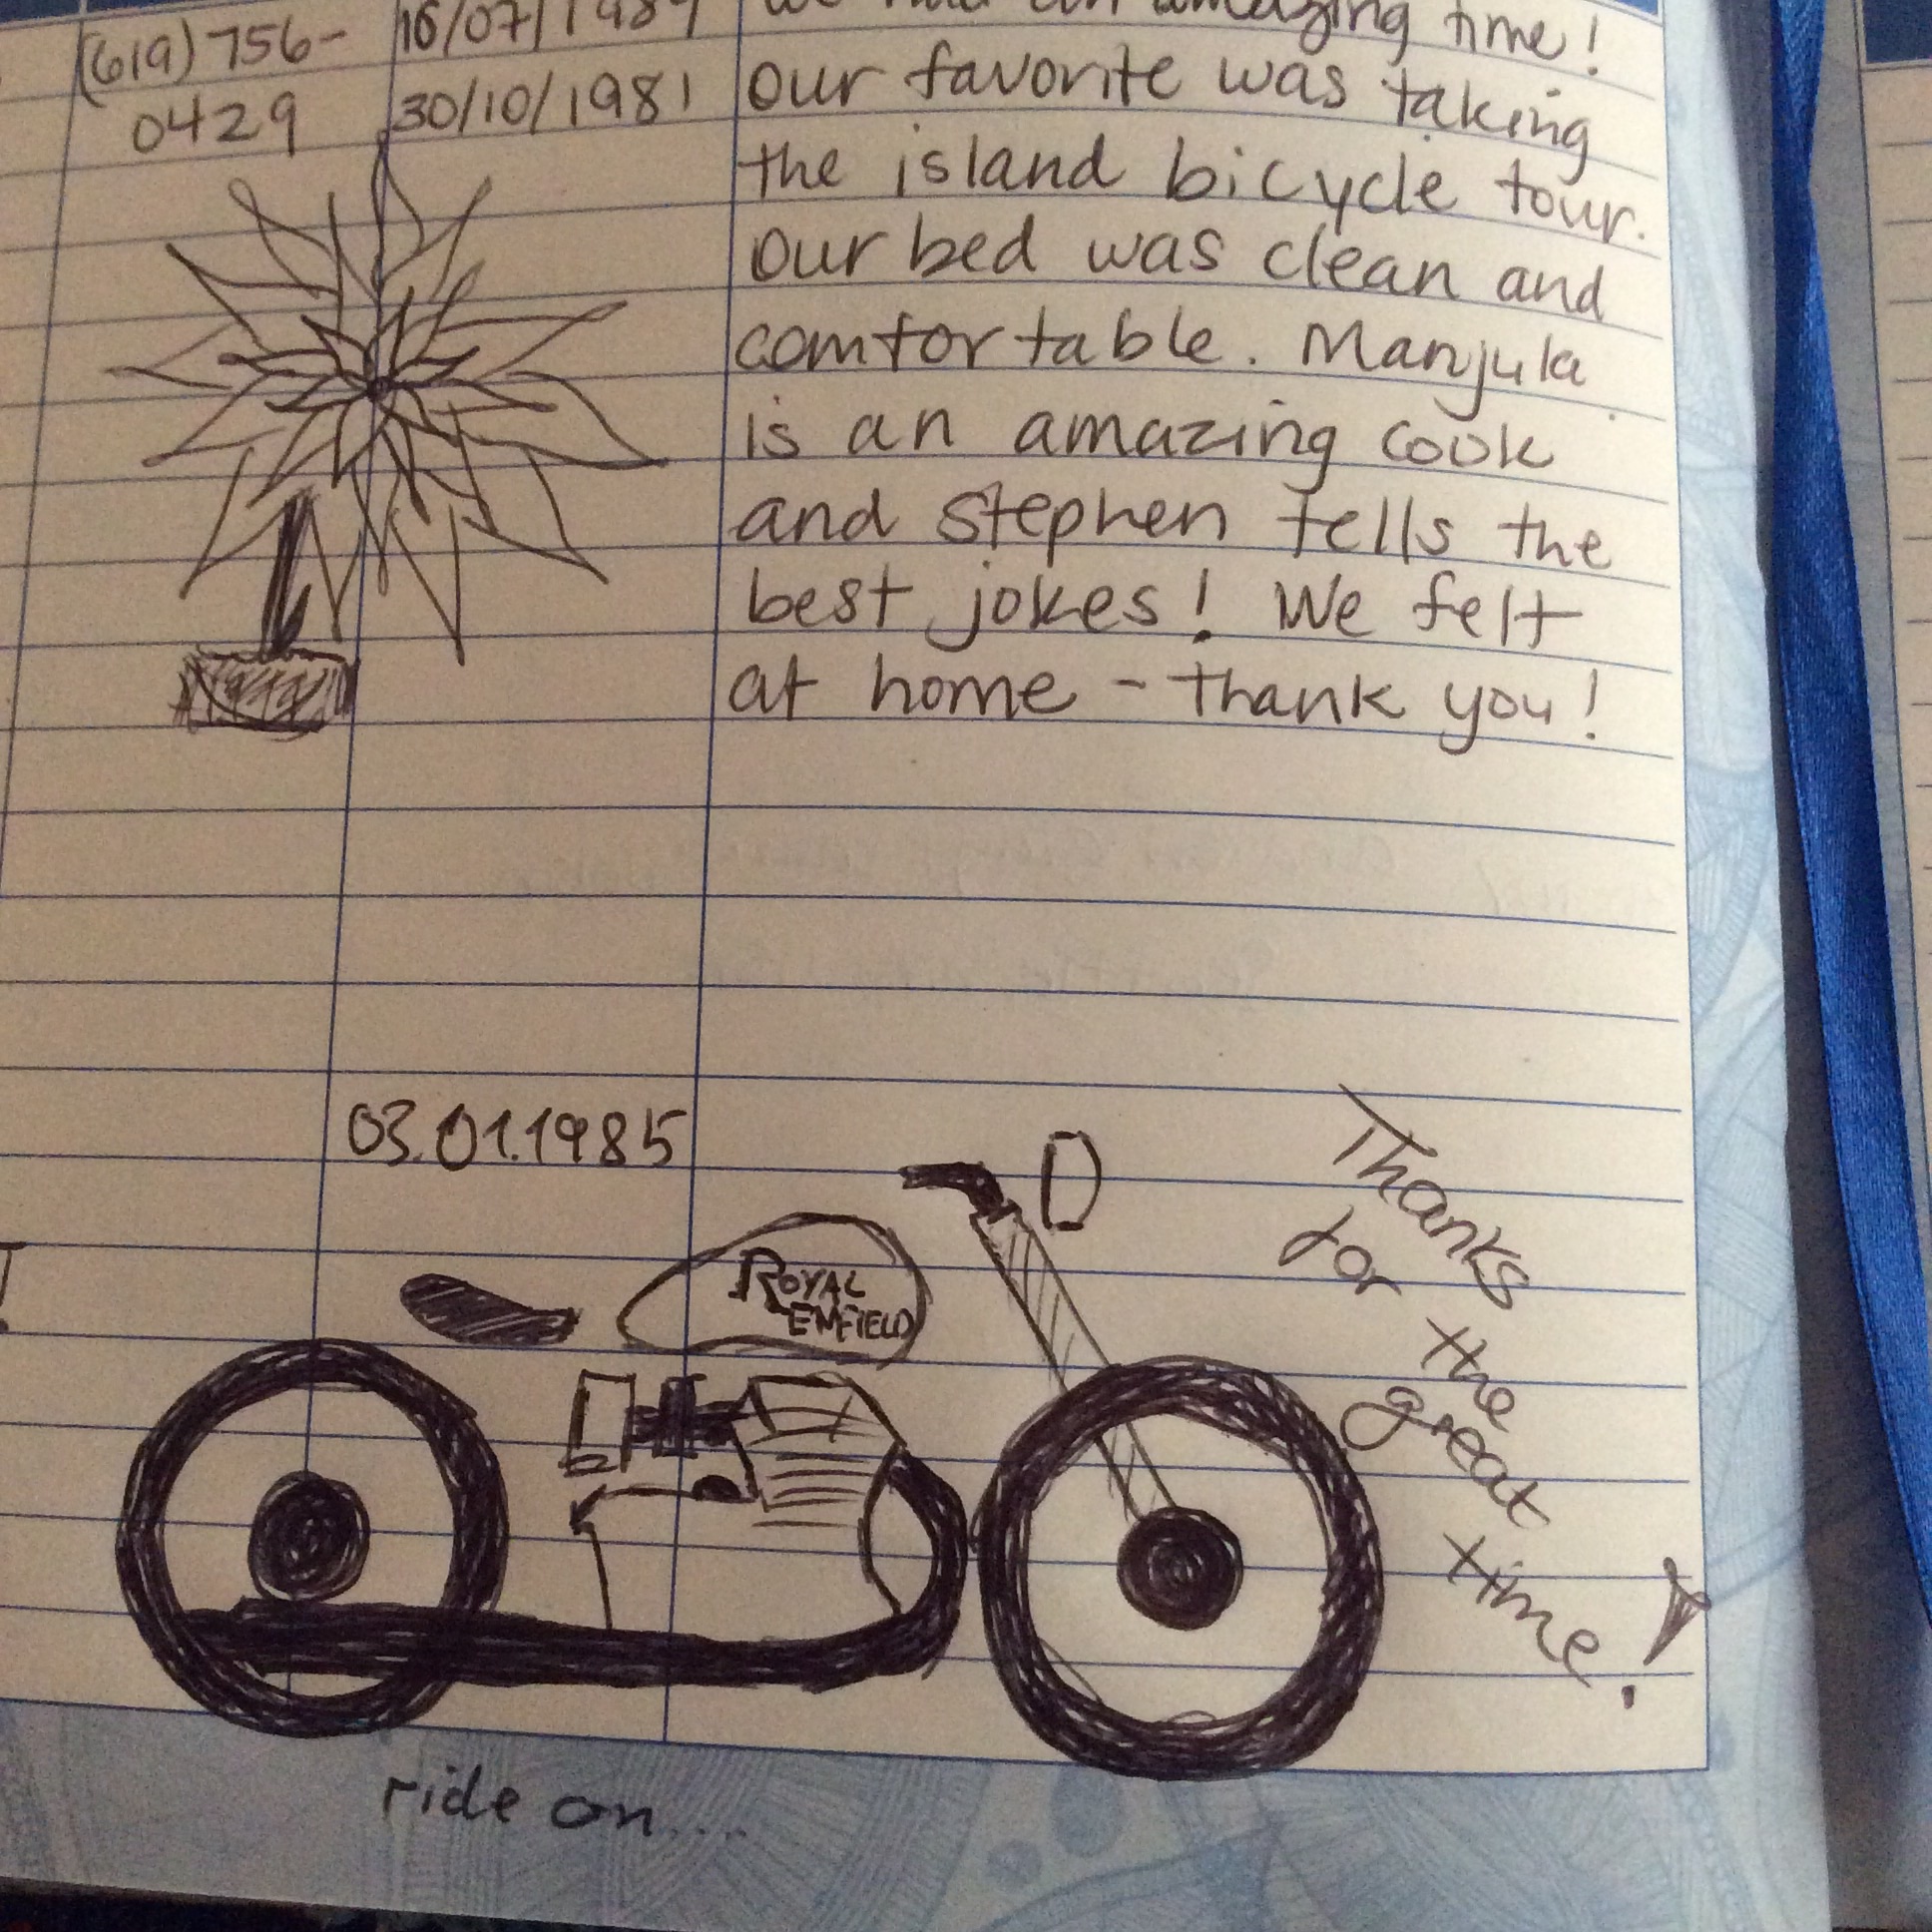 (619) 756-
0429
16/07/1984
30/10/1981
we had an amazing time!
our favorite was taking
the island bicycle tour.
Our bed was clean and
comfortable. Manjula
is an amazing cook
and Stephen tells the
best jokes! We felt
at home - thank you!
03.01.1985
ROYAL
ENFIELD
Thanks
for
the
great
time!
ride on....